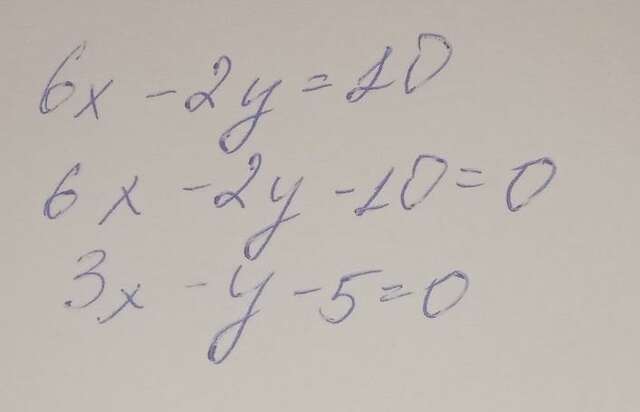 6x - 2y = 10
6x - 2y - 10 = 0
3x - y - 5 = 0